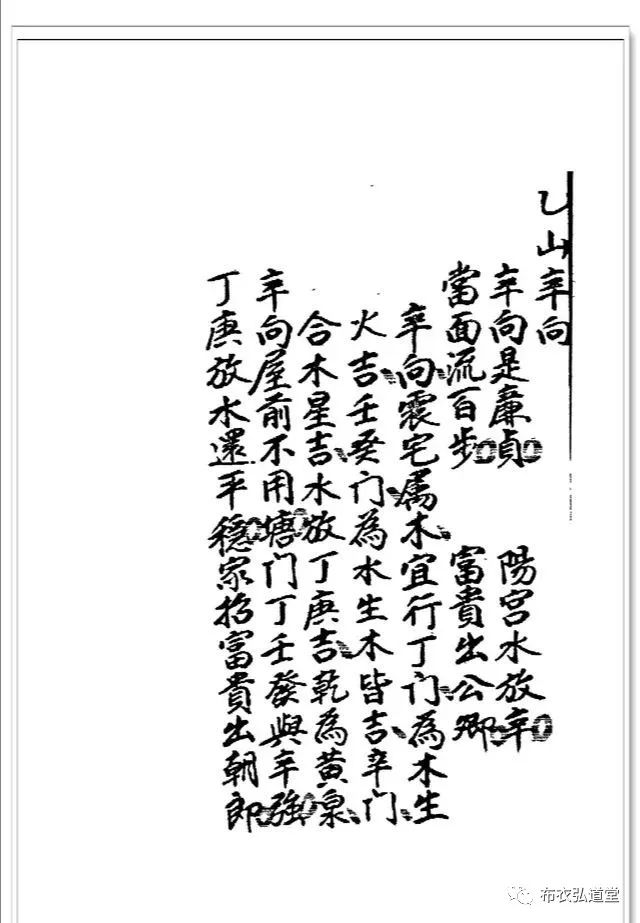 乙山辛向
辛向是廉貞 陽宮水放辛
當面流百步 富貴出公卿
辛向震宅属木宜行丁门為木生
火吉壬癸门為水生木皆吉辛门
合木星吉水放丁庚吉乾為黄泉
辛向屋前不用塘门丁壬發與辛強
丁庚放水還平穩家招富貴出朝郎
布衣弘道堂